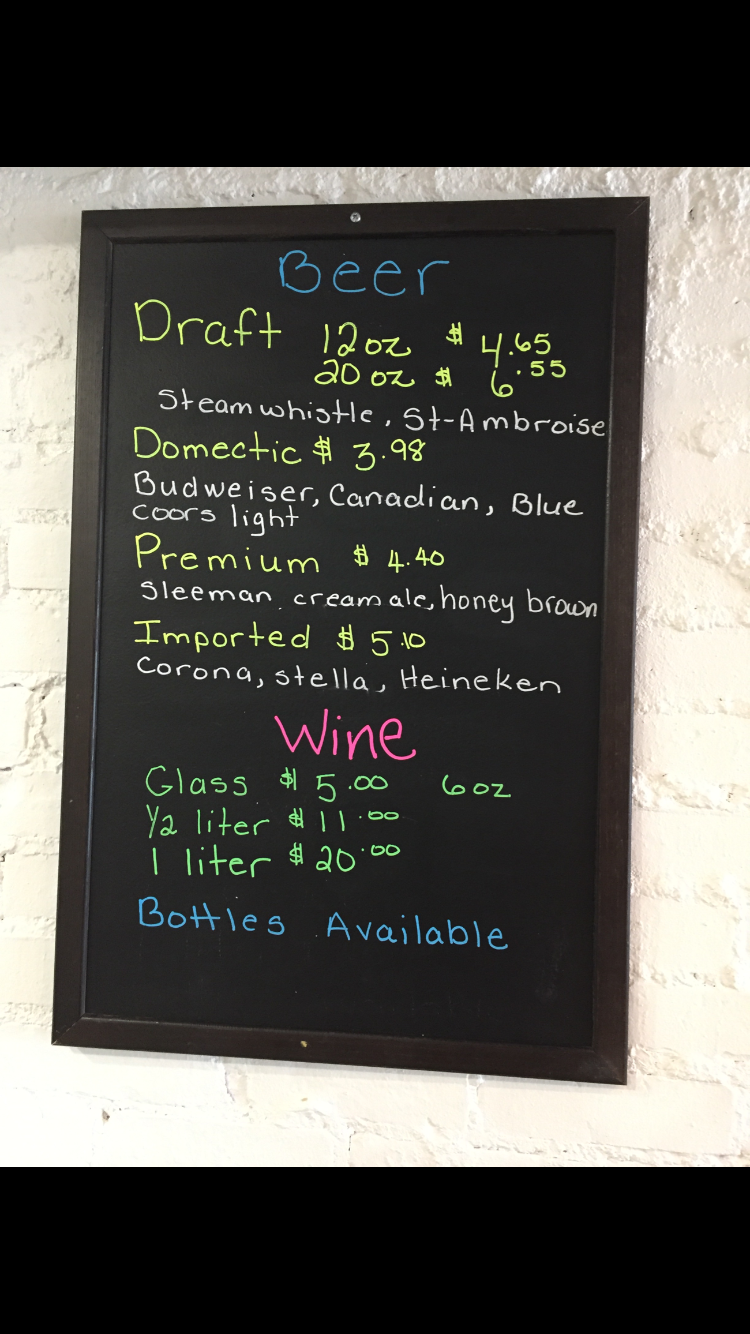 Beer
Draft 12oz $ 4.65
20 oz $ 6.55
Steamwhistle, St-Ambroise
Domectic $ 3.98
Budweiser, Canadian, Blue
coors light
Premium $ 4.40
Sleeman, cream ale, honey brown
Imported $ 5.10
Corona, stella, Heineken
Wine
Glass $ 5.00 6oz
1/2 liter $ 11.00
1 liter $ 20.00
Bottles Available